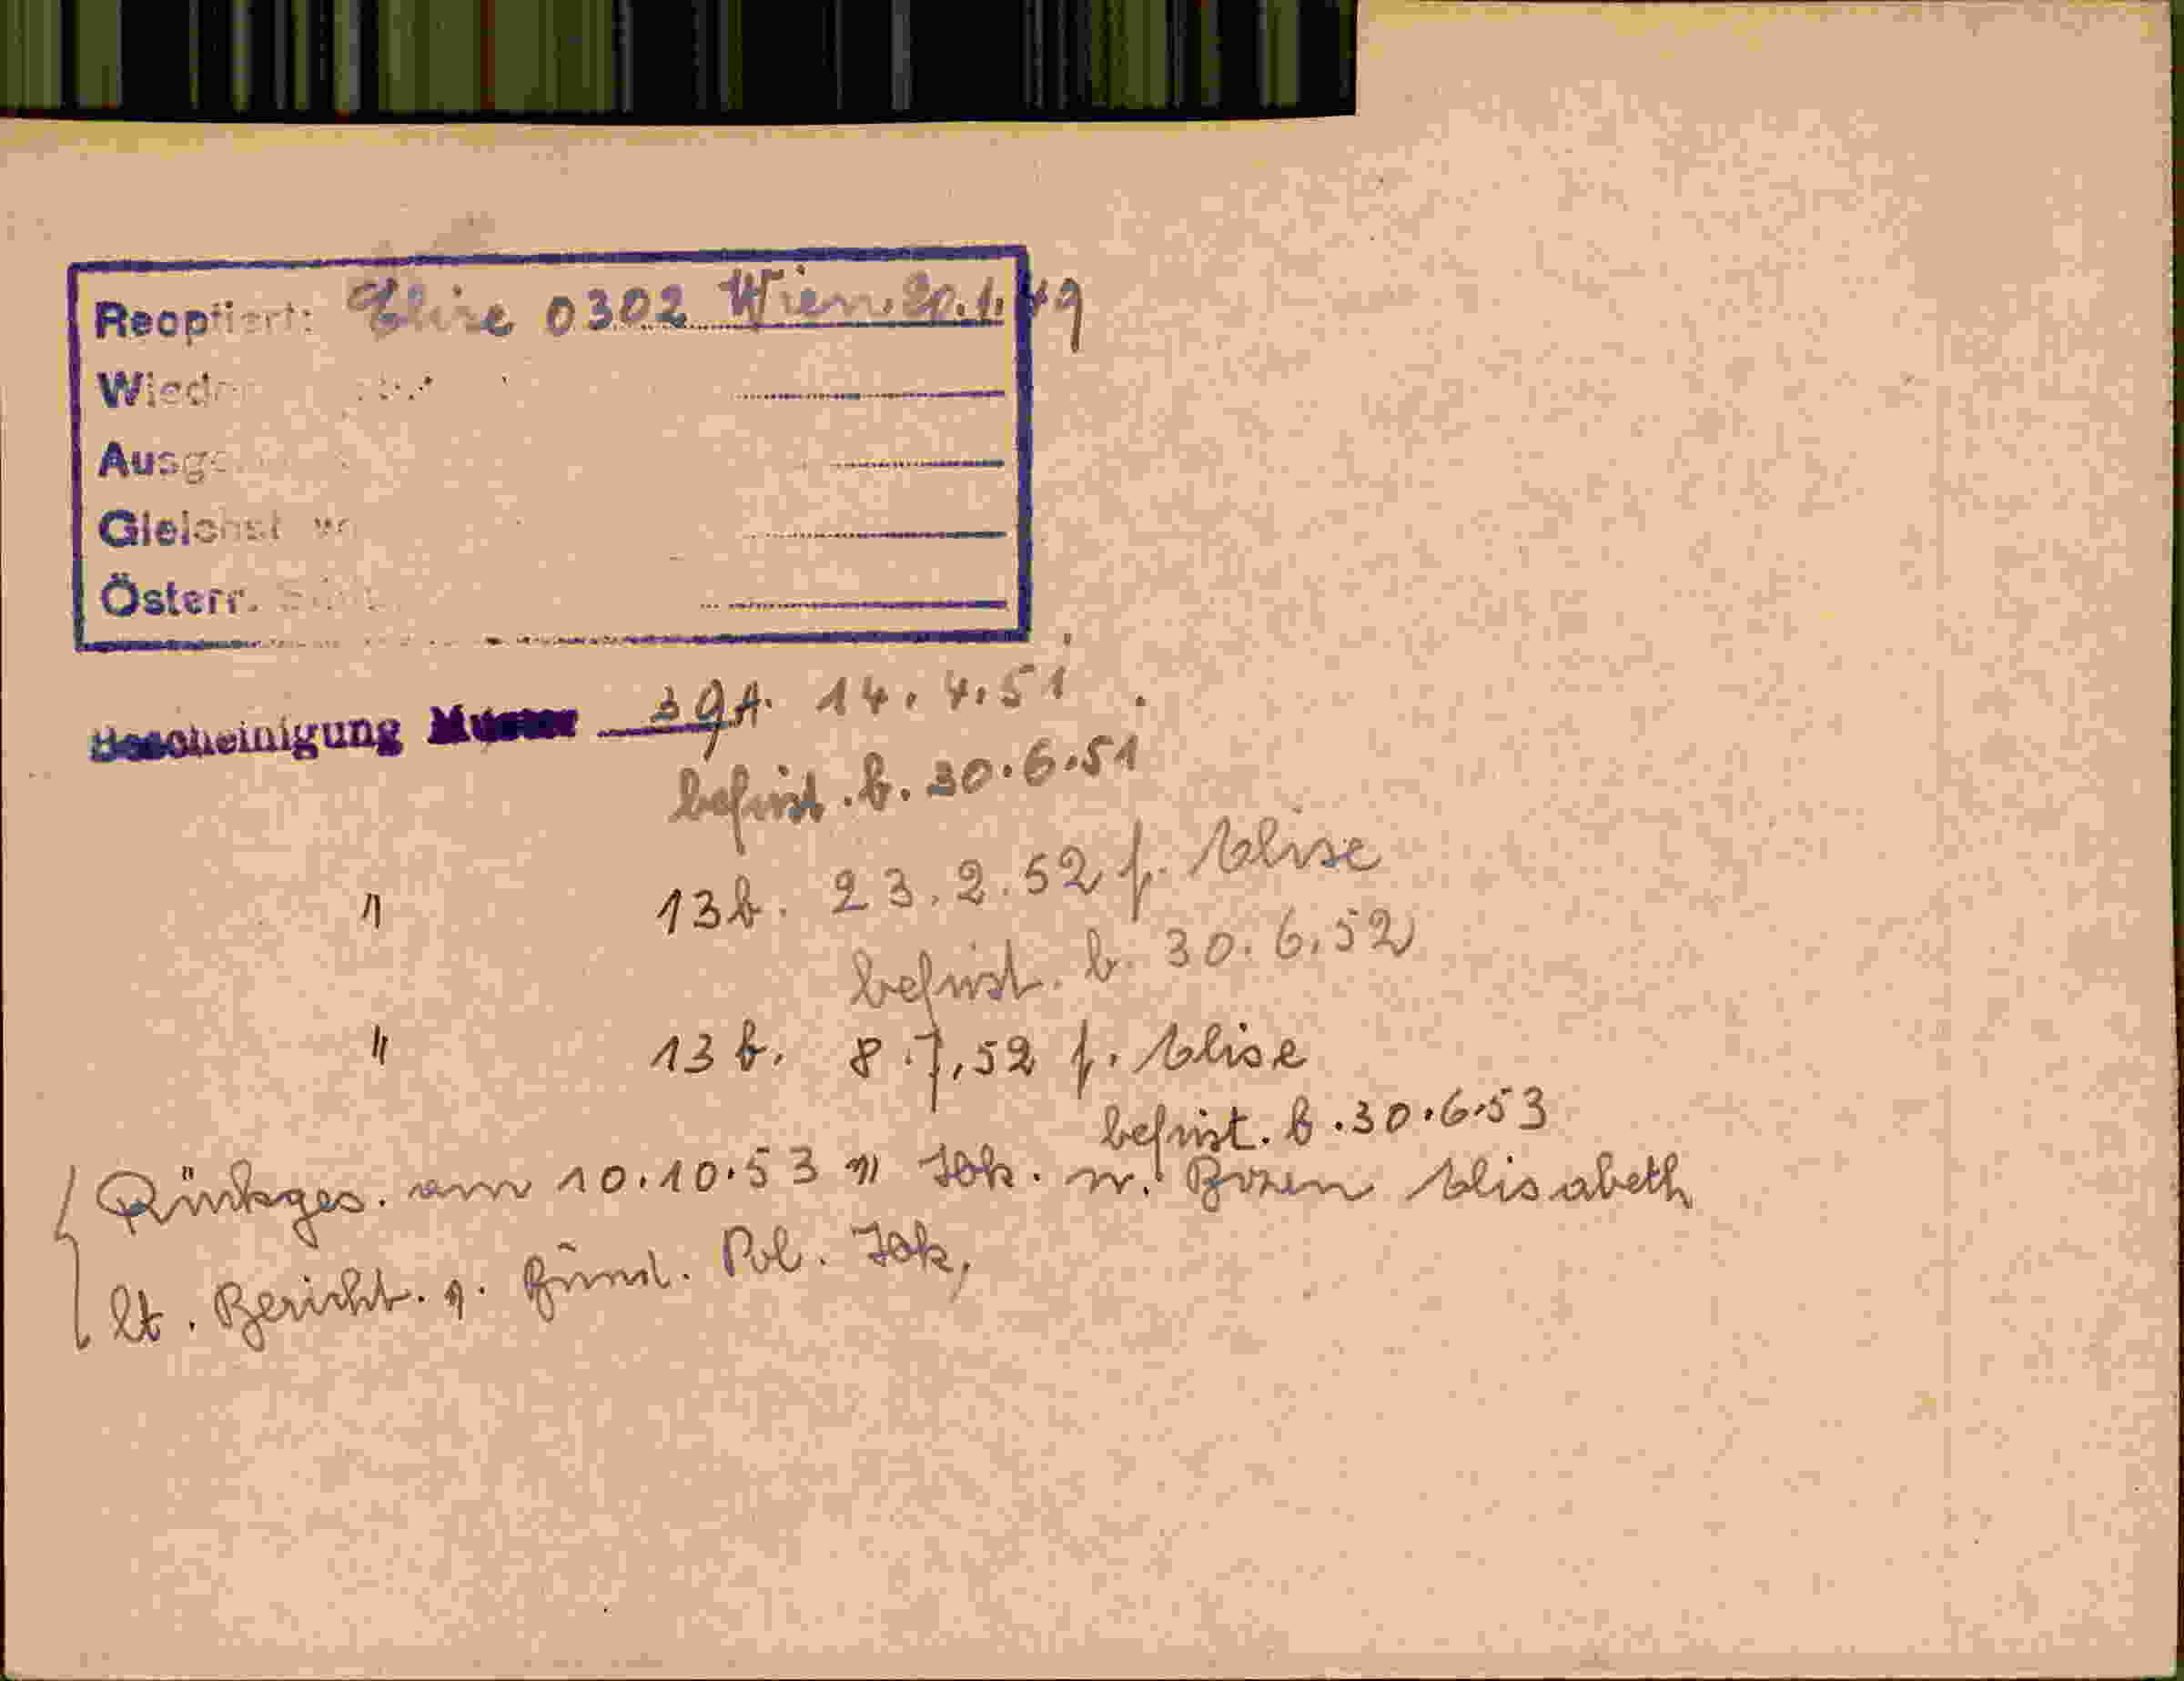 Reoptiert: Elise 0302 Wien, 20.1.49
Wied
Ausge
Gleichst
Österr.
Bescheinigung Muster 39A. 14.4.51
befrist. b. 30.6.51
" 13b. 23.2.52 f. Elise
befrist. b. 30.6.52
" 13b. 8.7.52 f. Elise
befrist. b. 30.6.53
Rückges. am 10.10.53 n. Ibk. n. Bozen Elisabeth
lt. Bericht. Bund. Pol. Ibk.